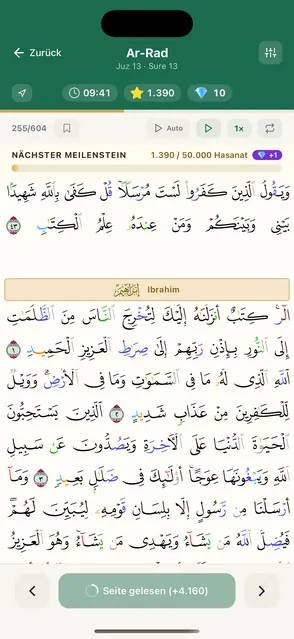 Zurück
Ar-Rad
Juz 13 · Sure 13
09:41
1.390
10
255/604
Auto
1x
NÄCHSTER MEILENSTEIN
1.390 / 50.000 Hasanat
+1
وَيَقُولُ الَّذِينَ كَفَرُوا۟ لَسْتَ مُرْسَلًا ۚ قُلْ كَفَىٰ بِاللَّهِ شَهِيدًۢا
بَيْنِى وَبَيْنَكُمْ وَمَنْ عِندَهُۥ عِلْمُ الْكِتَٰبِ ٤٣
إبراهيم
Ibrahim
الٓر ۚ كِتَٰبٌ أَنزَلْنَٰهُ إِلَيْكَ لِتُخْرِجَ النَّاسَ مِنَ الظُّلُمَٰتِ
إِلَى النُّورِ بِإِذْنِ رَبِّهِمْ إِلَىٰ صِرَٰطِ الْعَزِيزِ الْحَمِيدِ ١
اللَّهِ الَّذِى لَهُۥ مَا فِى السَّمَٰوَٰتِ وَمَا فِى الْأَرْضِ ۗ وَوَيْلٌ
لِّلْكَٰفِرِينَ مِنْ عَذَابٍ شَدِيدٍ ٢ الَّذِينَ يَسْتَحِبُّونَ
الْحَيَوٰةَ الدُّنْيَا عَلَى الْءَاخِرَةِ وَيَصُدُّونَ عَن سَبِيلِ
اللَّهِ وَيَبْغُونَهَا عِوَجًا ۚ أُو۟لَٰٓئِكَ فِى ضَلَٰلٍۭ بَعِيدٍ ٣ وَمَآ
أَرْسَلْنَا مِن رَّسُولٍ إِلَّا بِلِسَانِ قَوْمِهِۦ لِيُبَيِّنَ لَهُمْ ۖ
فَيُضِلُّ اللَّهُ مَن يَشَآءُ وَيَهْدِى مَن يَشَآءُ ۚ وَهُوَ الْعَزِيزُ
Seite gelesen (+4.160)